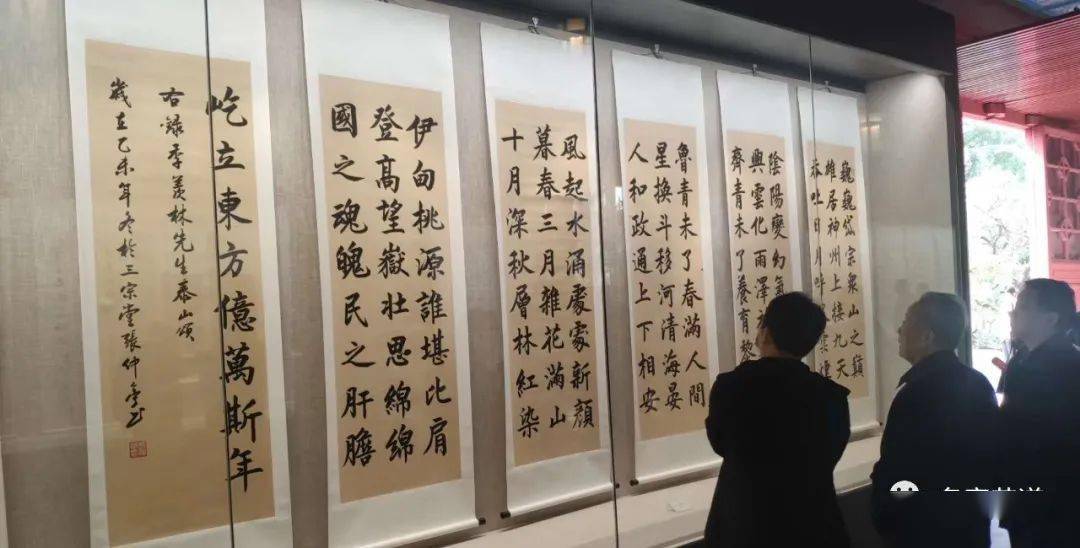 巍巍岱宗眾山之巔
雄居神州上接九天
吞吐日月呼雲煙
陰陽變幻氣
興雲化雨澤
齊青未了養育黎
魯青未了春滿人間
星換斗移河清海晏
人和政通上下相安
風起水涌處處新顏
暮春三月雜花滿山
十月深秋層林紅染
伊甸桃源誰堪比肩
登高望嶽壯思綿綿
國之魂魄民之肝膽
屹立東方億萬斯年
右録季羨林先生泰山頌
歲在乙未年冬於三宗堂張仲亭書